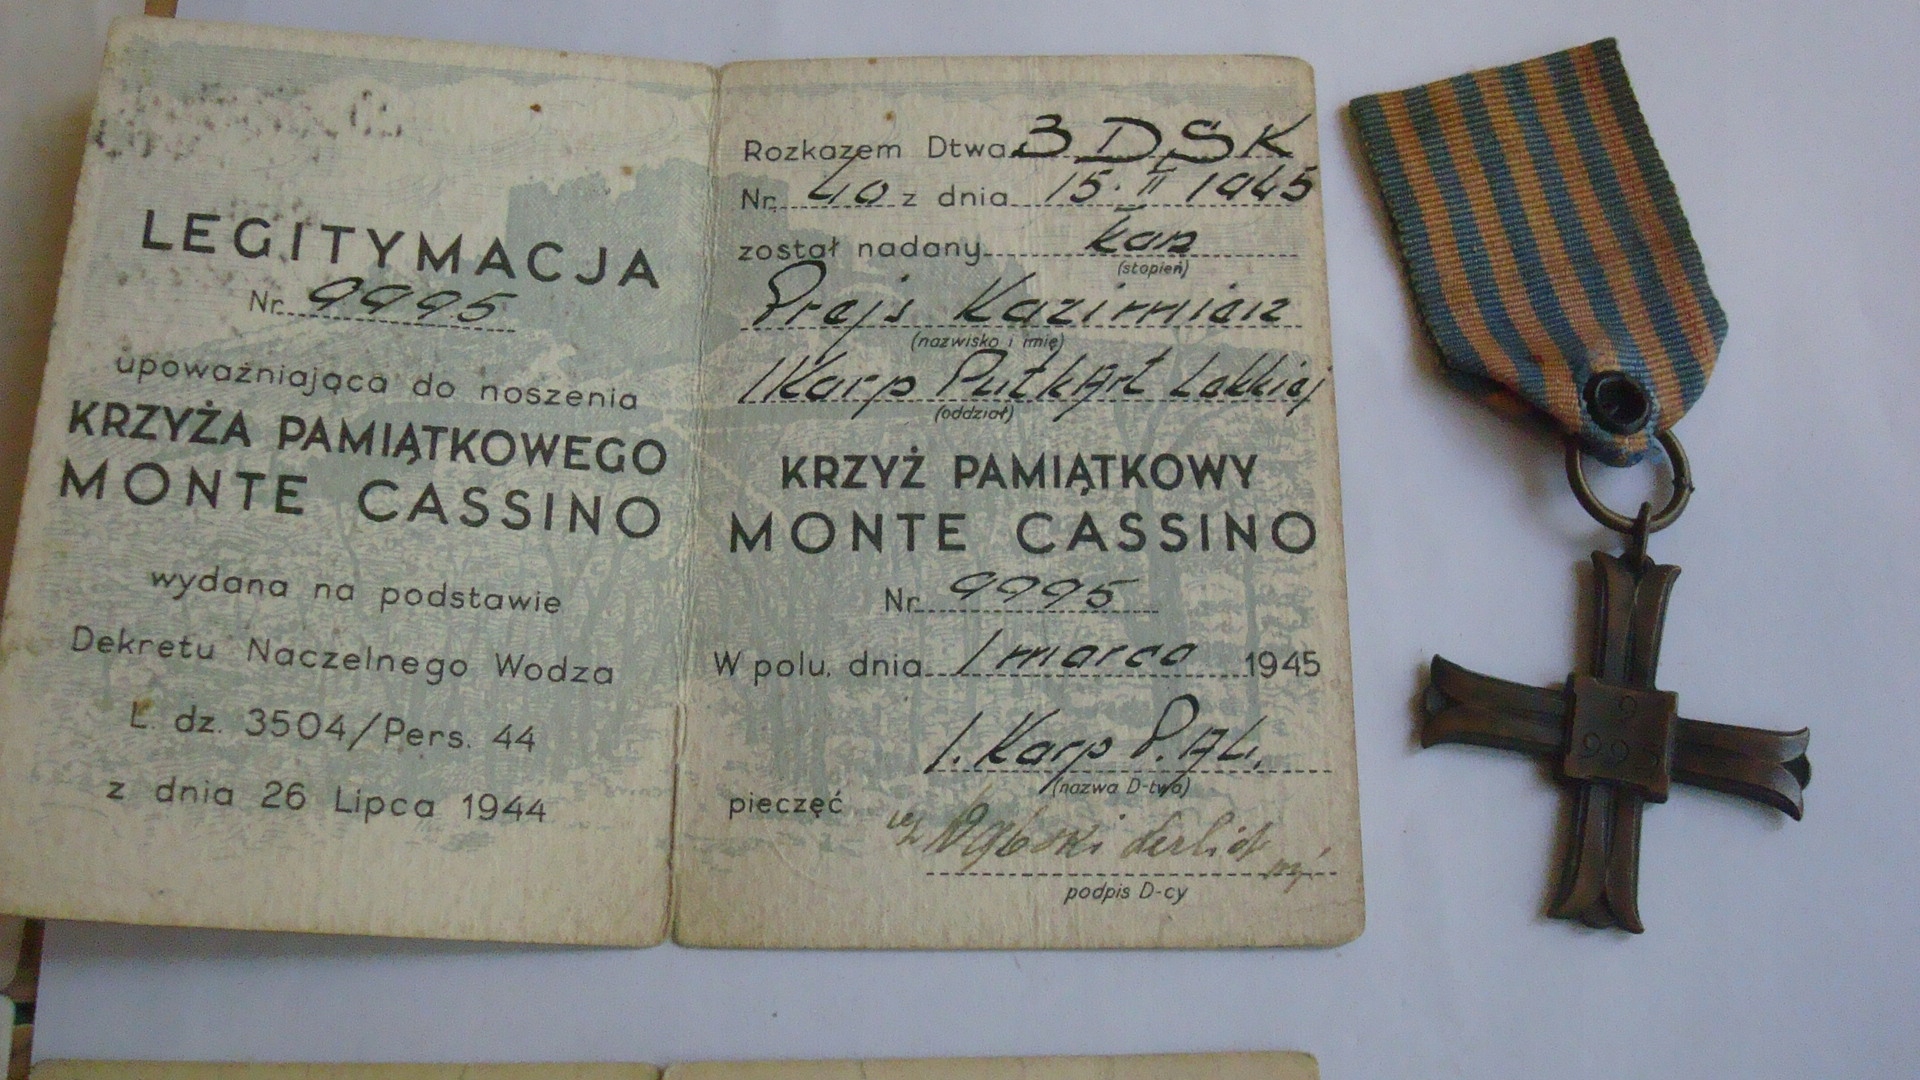 LEGITYMACJA
Nr. 9995
upoważniająca do noszenia
KRZYŻA PAMIĄTKOWEGO
MONTE CASSINO
wydana na podstawie
Dekretu Naczelnego Wodza
L. dz. 3504/Pers. 44
z dnia 26 Lipca 1944
Rozkazem Dtwa 3 DSK
Nr. 40 z dnia 15. II 1945
został nadany kan
(stopień)
Prajs Kazimierz
(nazwisko i imię)
1 Karp Pułk Art Lekkiej
(oddział)
KRZYŻ PAMIĄTKOWY
MONTE CASSINO
Nr. 9995
W polu, dnia 1 marca 1945
1. Karp P.A.L.
(nazwa D-twa)
pieczęć
podpis D-cy
9
995